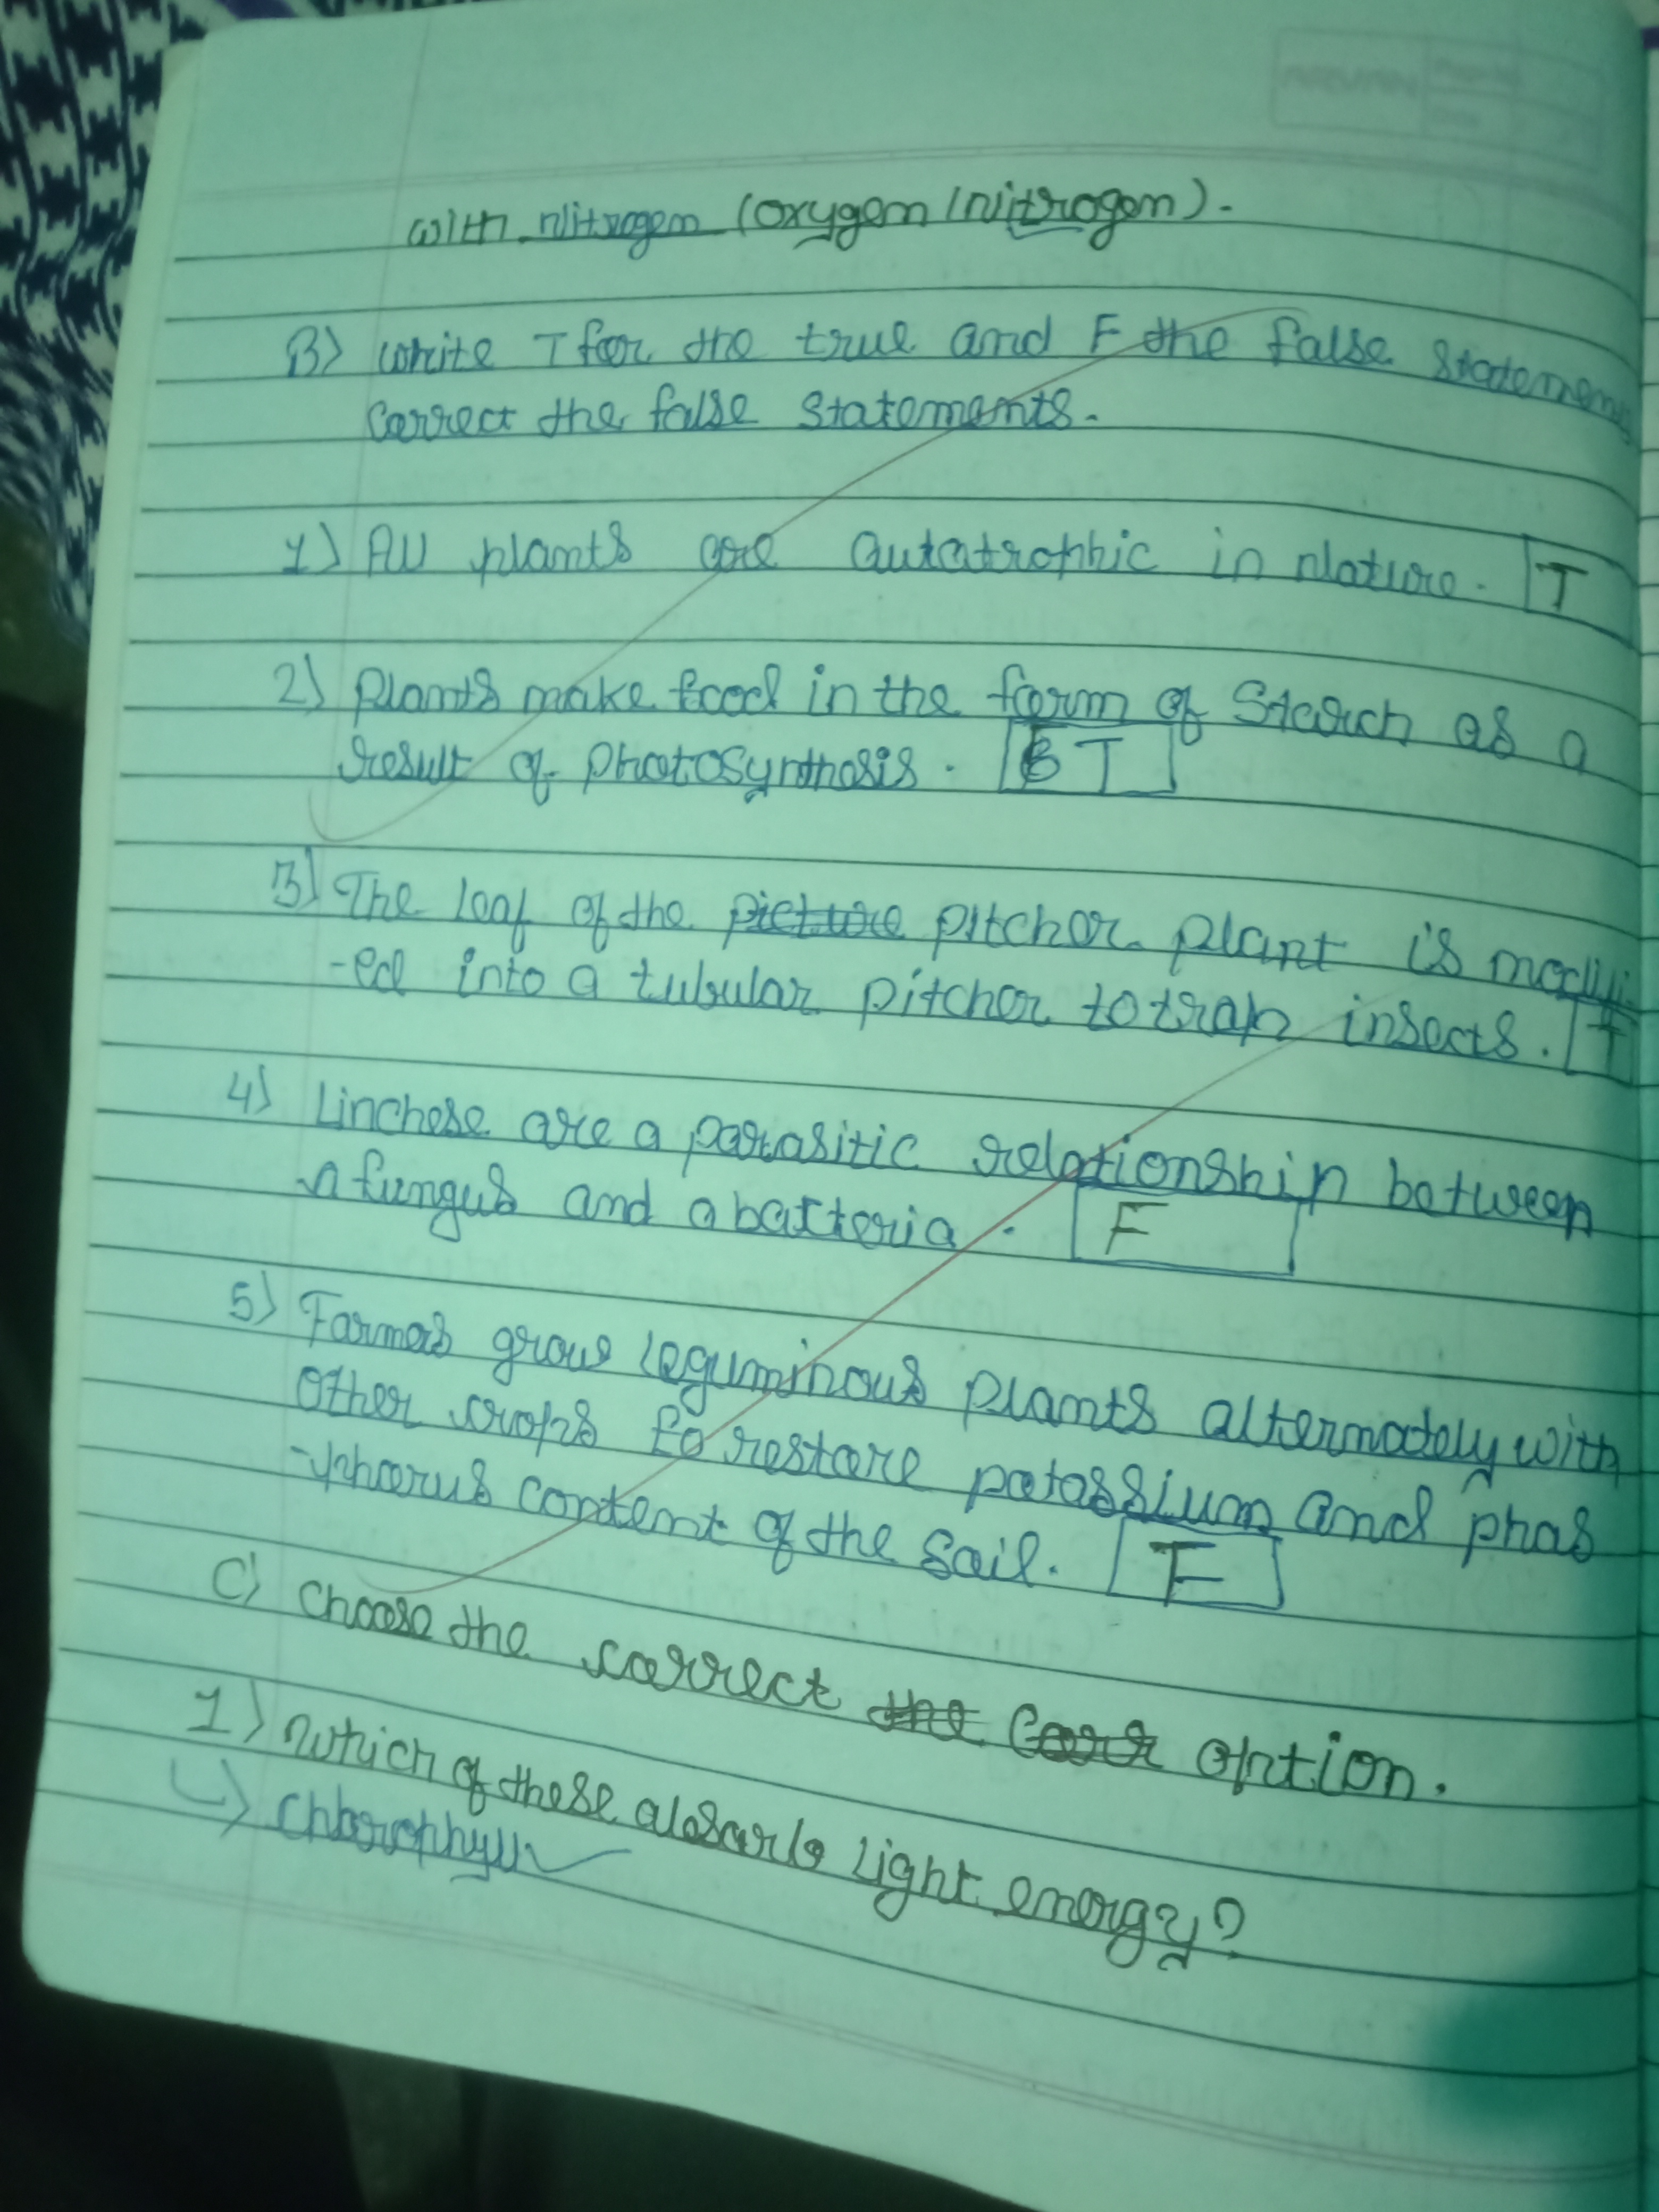 with nitrogen (oxygen/nitrogen).
B) write T for the true and F the false statements
correct the false statements.
1) All plants are autatrophic in nature. T
2) plants make food in the form of starch as a
result of photosynthesis. T
3) The leaf of the picture pitcher plant is modifi-
-ed into a tubular pitcher to trap insects. T
4) Linchese are a parasitic relationship between
a fungus and a batteria. F
5) Farmas grow leguminous plants alternately with
other crops to restore patassium and phas
-phorus content of the sail. F
C) Choose the correct the option.
1) which of these absarb light energy?
↳) chlorophyll